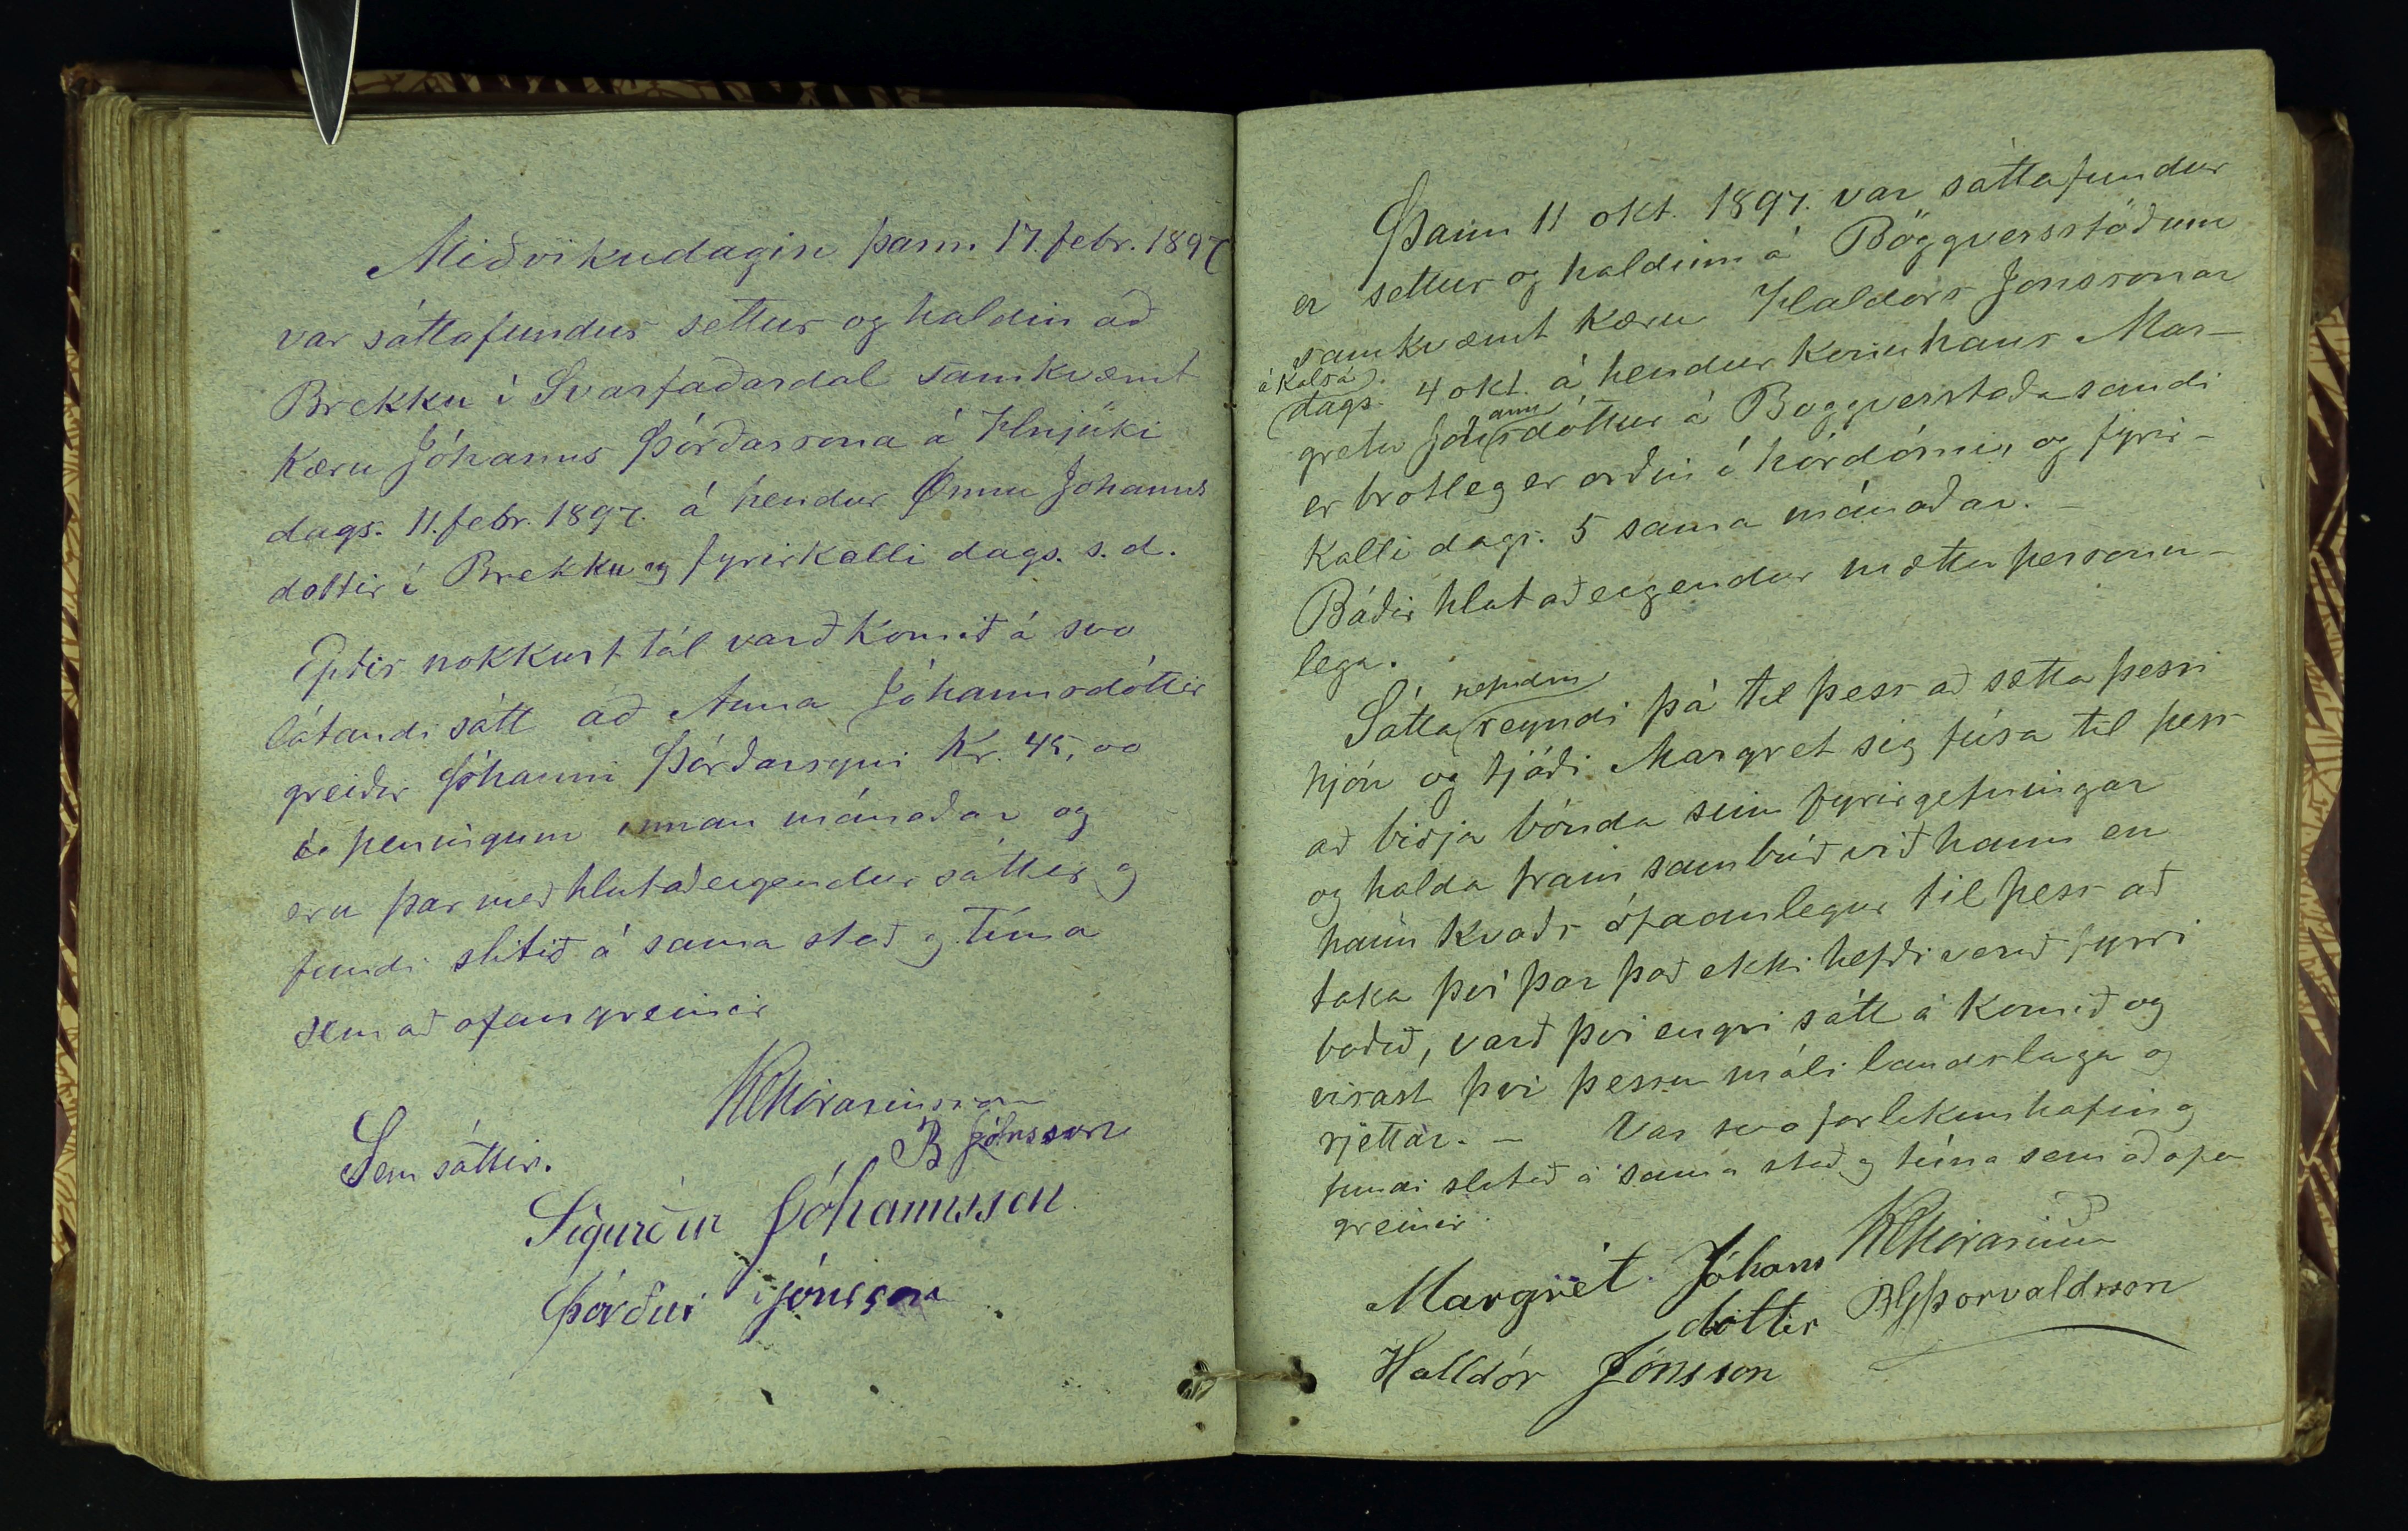 Miðvikudagin þann. 17. febr. 1897
var sáttafundur settur og haldin að
Brekku í Svarfaðardal samkvæmt
Kæru Jóhanns Þórðarsona á Hnjúki
dags. 11. febr. 1897. á hendur Önnu Johanns
dottir í Brekku og fyrirkalli dags. s. d.
Eptir nokkurt tál varð Komið á svo
látandi sátt að Anna Jóhannsdóttir
greiðir Jóhanni Þórðarsyni Kr. 45,00
í peningum innan mánaðar og
eru þar með hlutaðeigendur sáttir og
fundi slitið á sama stað og tíma
sem að ofan greinir
B Jónsson
Sem sáttir.
Sigurður Jóhannsson
Þórður Jónsson
Þann 11 okt. 1897. var sáttafundur
er settur og haldinn á Böggversstöðum
samkvæmt Kæru Haldórs Jonssonar
á Kálsá
dags. 4 okt. á hendur Konu hans Mar-
gretu Jóhannsdóttur á Boggverstaðasandi
er brotleg er orðin í hórdómi, og fyrir-
Kalli dags. 5 sama mánaðar. -
Báðir hlutaðeigendur mættu persónu-
lega.
Sátta nefndin reyndi þá til þess að sætta þessi
hjón og tjáði Margret sig fúsa til þess
að biðja bónda sinn fyrirgefningar
og halda fram sambúð við hann en
hann Kvaðs ófáanlegur til þess að
taka því þar það ekki hefði verið fyrri
boðið, varð því engri sátt á Komið og
vísast því þessu máli landslaga og
rjettar. - Var svo forlíkun hafin og
fundi slitið á sama stað og tíma sem að ofan
greinir.
Margrét Jóhans
dóttir Þorvaldsson
Halldór Jónsson